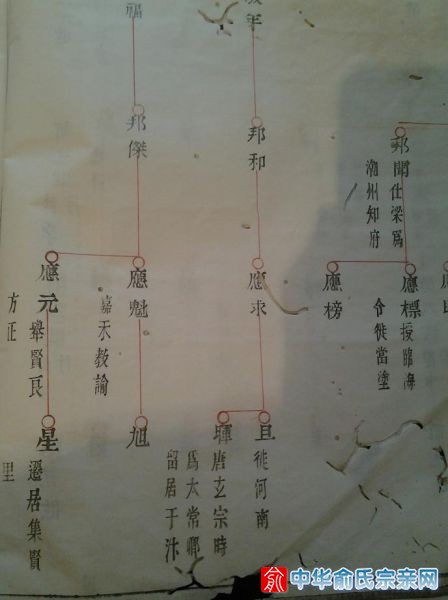 邦聞仕梁為
潮州知府
應標授臨海
令徙當塗
應榜
年
邦和
應求
旦徙河南
暉唐玄宗時
為太常卿
留居于汴
福
邦傑
應魁
嘉禾教諭
旭
應元舉賢良
方正
星遷居集賢
里
中华俞氏宗亲网